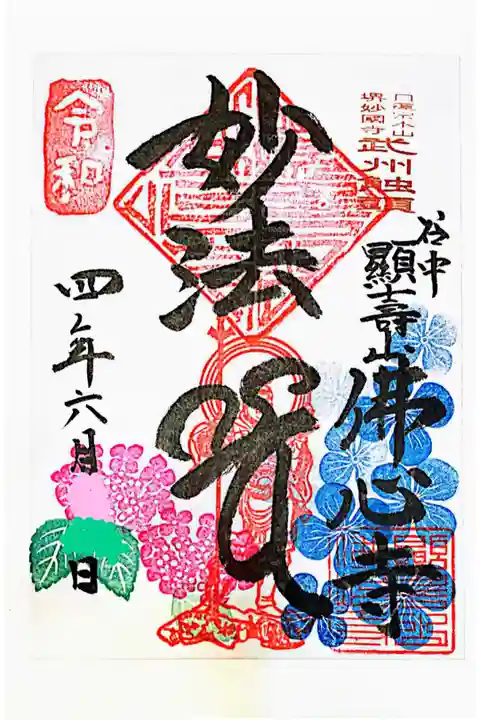 日蓮宗本山
堺妙國寺 武州觸頭
谷中
顯壽山佛心寺
妙法
令和
四年六月 日